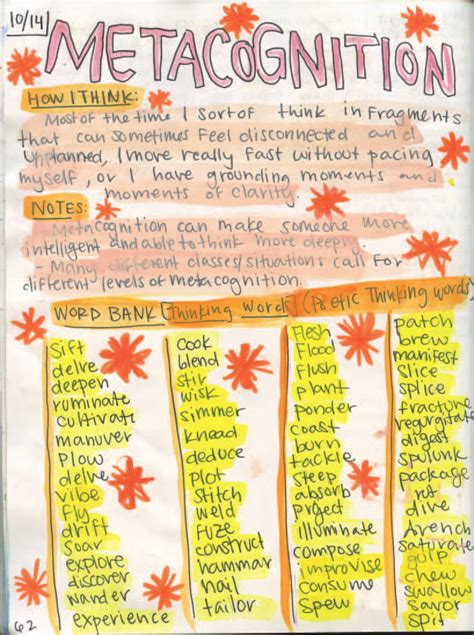 10/14
METACOGNITION
HOW I THINK:
Most of the time I sort of think in fragments
that can sometimes feel disconnected and
unplanned, I move really fast without pacing
myself, or I have grounding moments and
moments of clarity.
NOTES:
- Metacognition can make someone more
intelligent and able to think more deeply.
- Many different classes/situations call for
different levels of metacognition.
WORD BANK [Thinking Words] (Poetic Thinking words)
Sift
delve
deepen
ruminate
cultivate
manuver
Plow
delve
vibe
fly
drift
soar
explore
discover
wander
experience
Cook
blend
stir
wisk
simmer
knead
deduce
plot
Stitch
weld
fuze
construct
hammar
nail
tailor
Flesh
Flood
flush
plant
ponder
coast
burn
tackle
steep
absorb
project
illuminate
compose
improvise
consume
Spew
patch
brew
manifest
Slice
splice
fracture
regurgitate
digest
splunk
package
dive
drench
saturate
gulp
chew
swallow
savor
spit
62